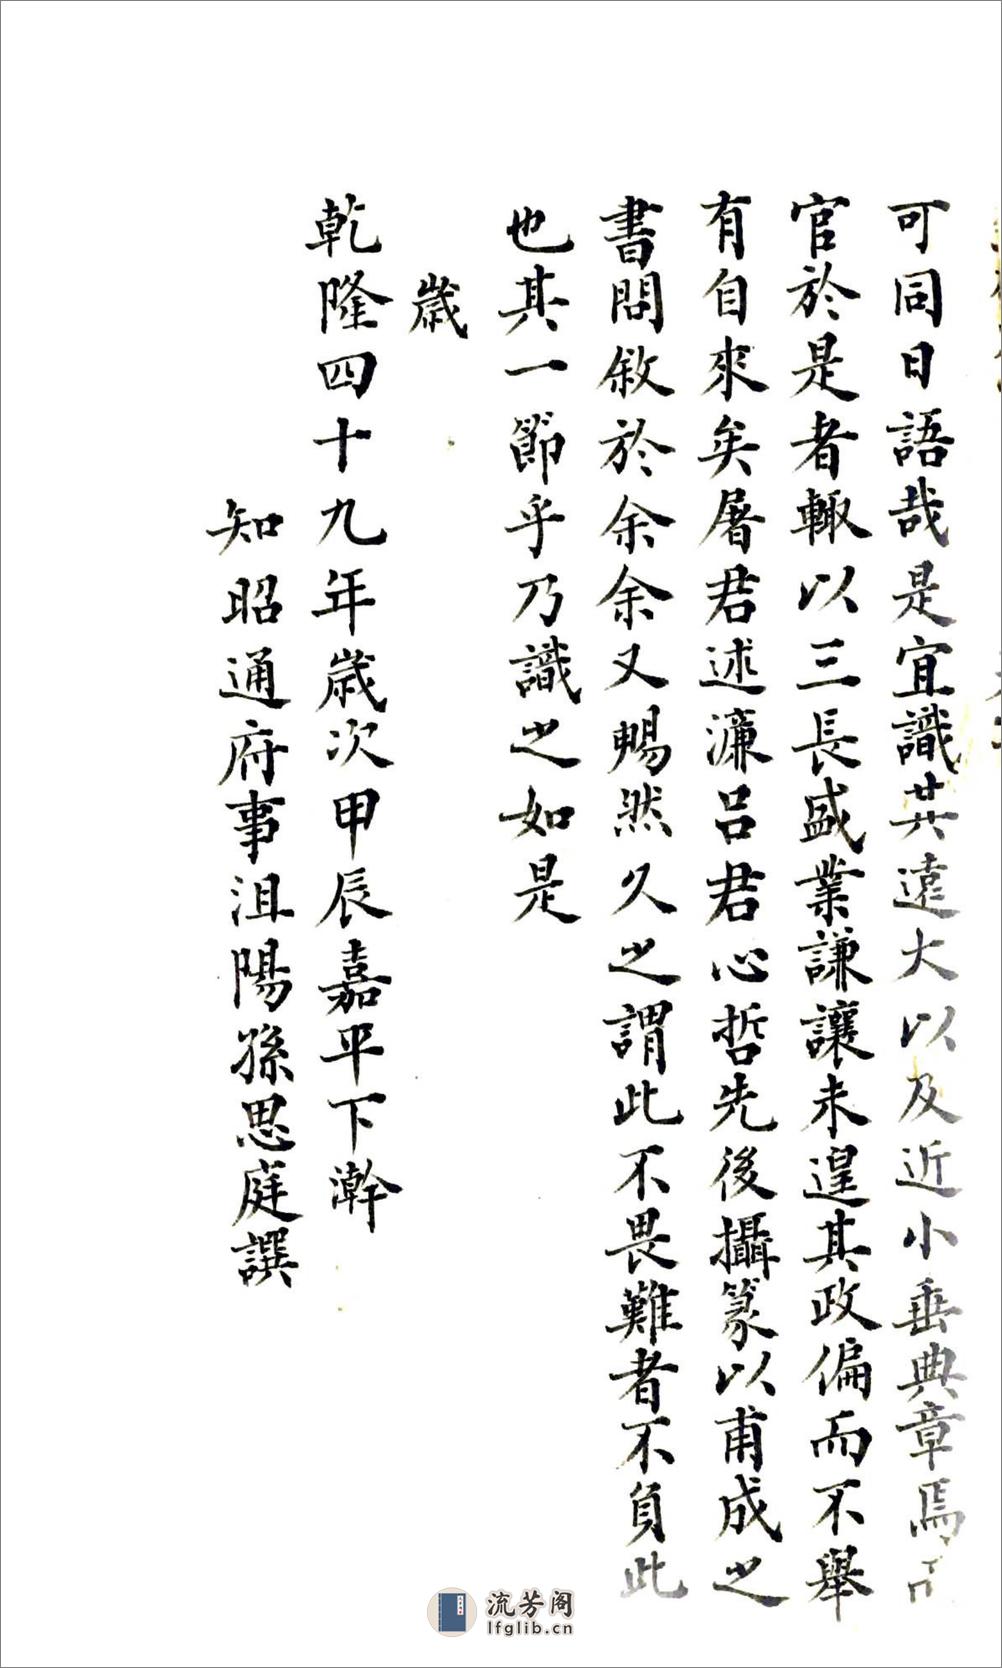 可同日語哉是宜識其遠大以及近小垂典章焉
官於是者輙以三長盛業謙讓未遑其政偏而不舉
有自來矣屠君述濂呂君心哲先後攝篆以甫成之
書問敘於余余又暢然久之謂此不畏難者不負此
也其一節乎乃識之如是
歲
乾隆四十九年歲次甲辰嘉平下澣
知昭通府事沮陽孫思庭譔
流芳阁
lfglib.cn